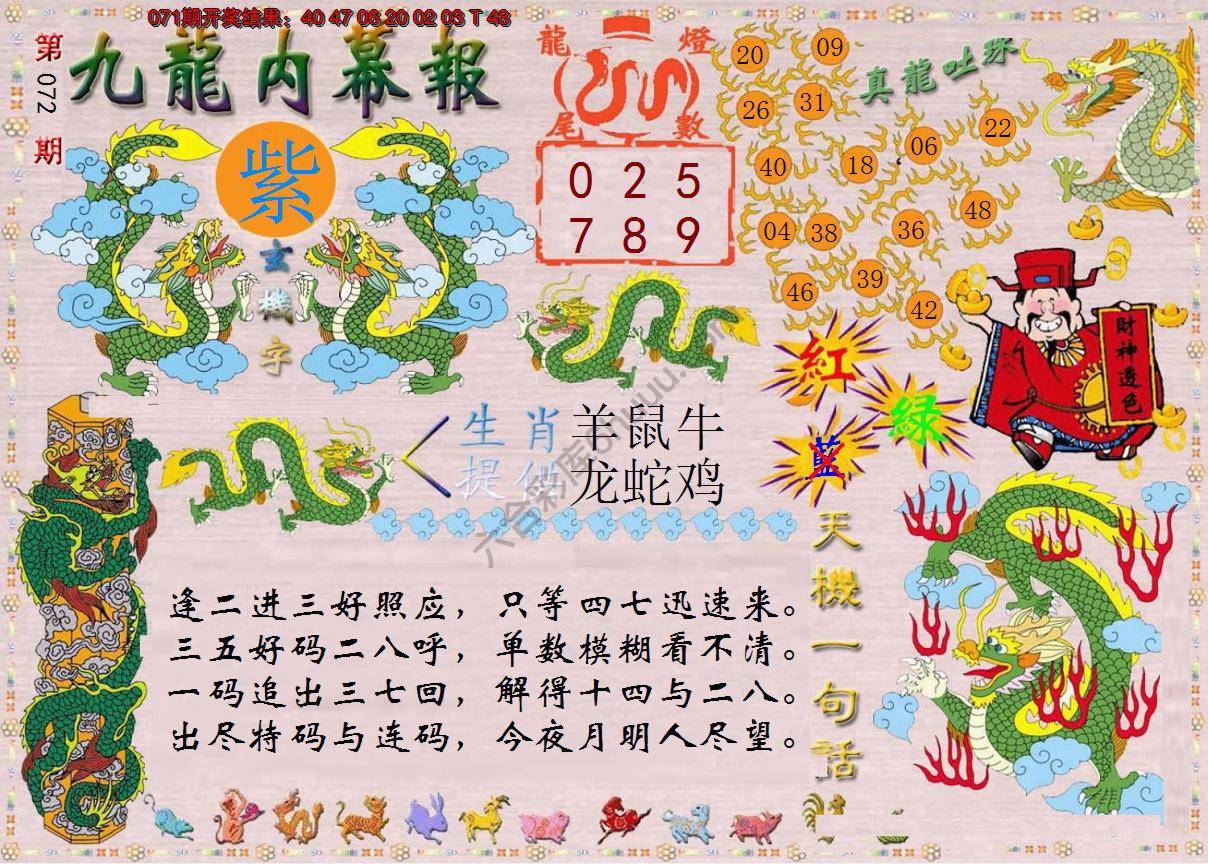 071期开奖结果：40 47 06 20 02 03 T 48
第072期
九龍内幕報
紫
玄機字
龍燈
尾數
0 2 5
7 8 9
真龍吐珠
20 09
26 31
40 18 06 22
04 38 36 48
46 39 42
財神透色
紅
綠
藍
生肖 羊鼠牛
提供 龙蛇鸡
逢二进三好照应，只等四七迅速来。
三五好码二八呼，单数模糊看不清。
一码追出三七回，解得十四与二八。
出尽特码与连码，今夜月明人尽望。
天機一句話